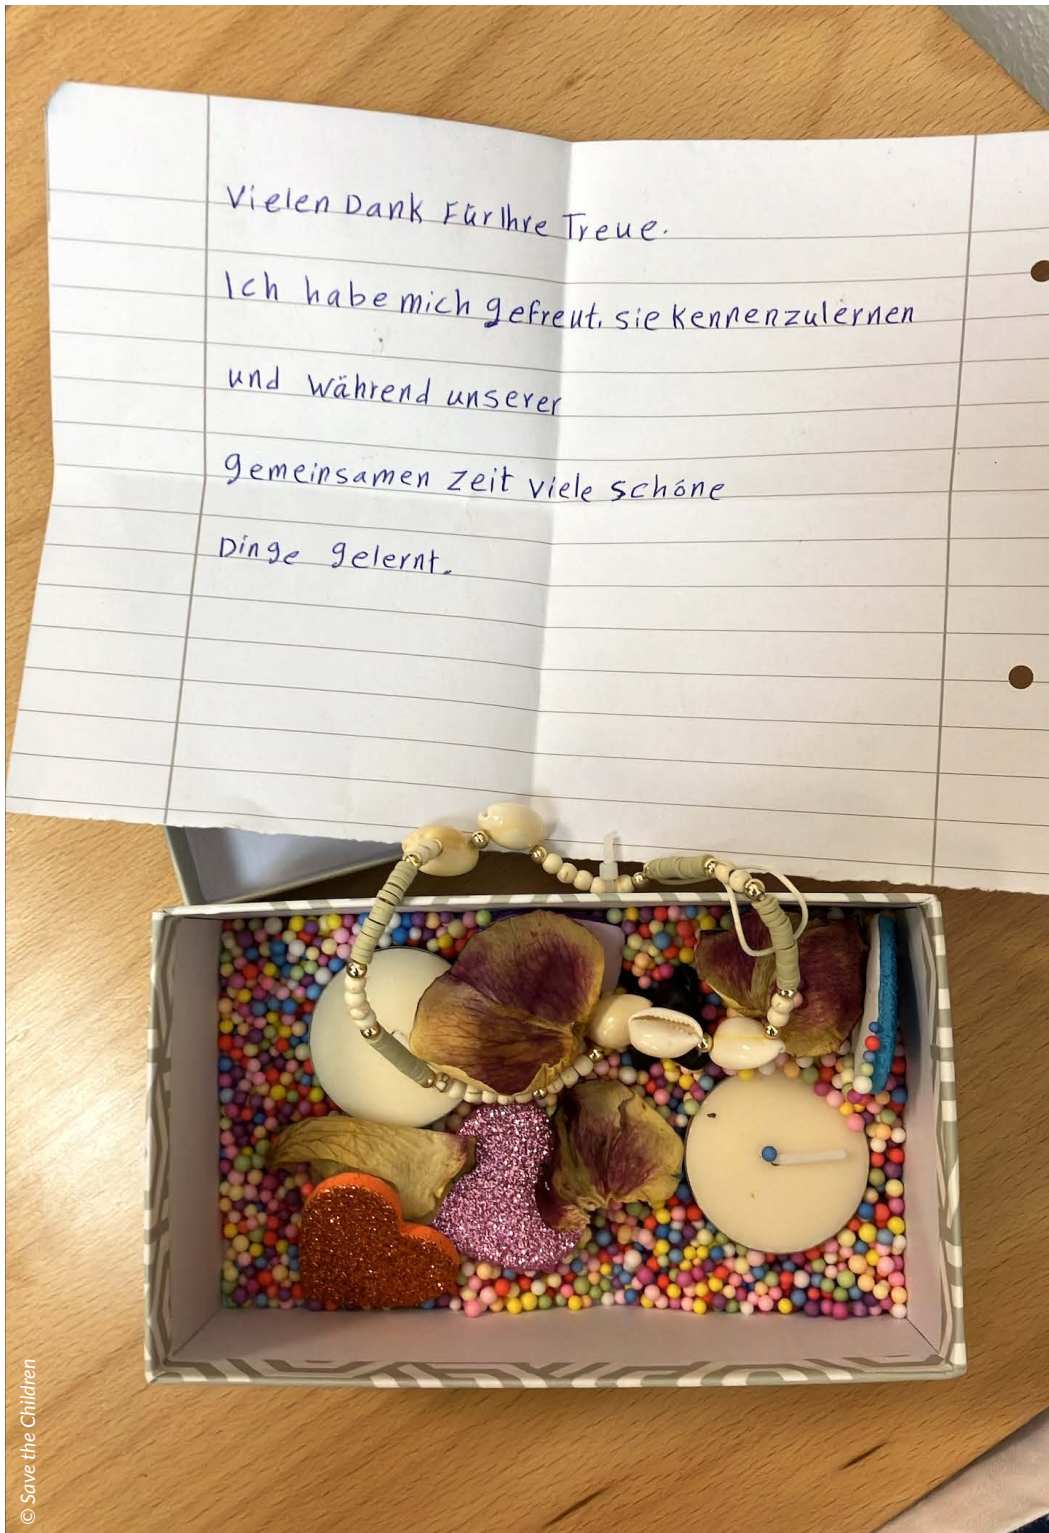 Vielen Dank Für Ihre Treue.
Ich habe mich gefreut, sie kennenzulernen
und während unserer
gemeinsamen zeit viele schöne
Dinge gelernt.
© Save the Children